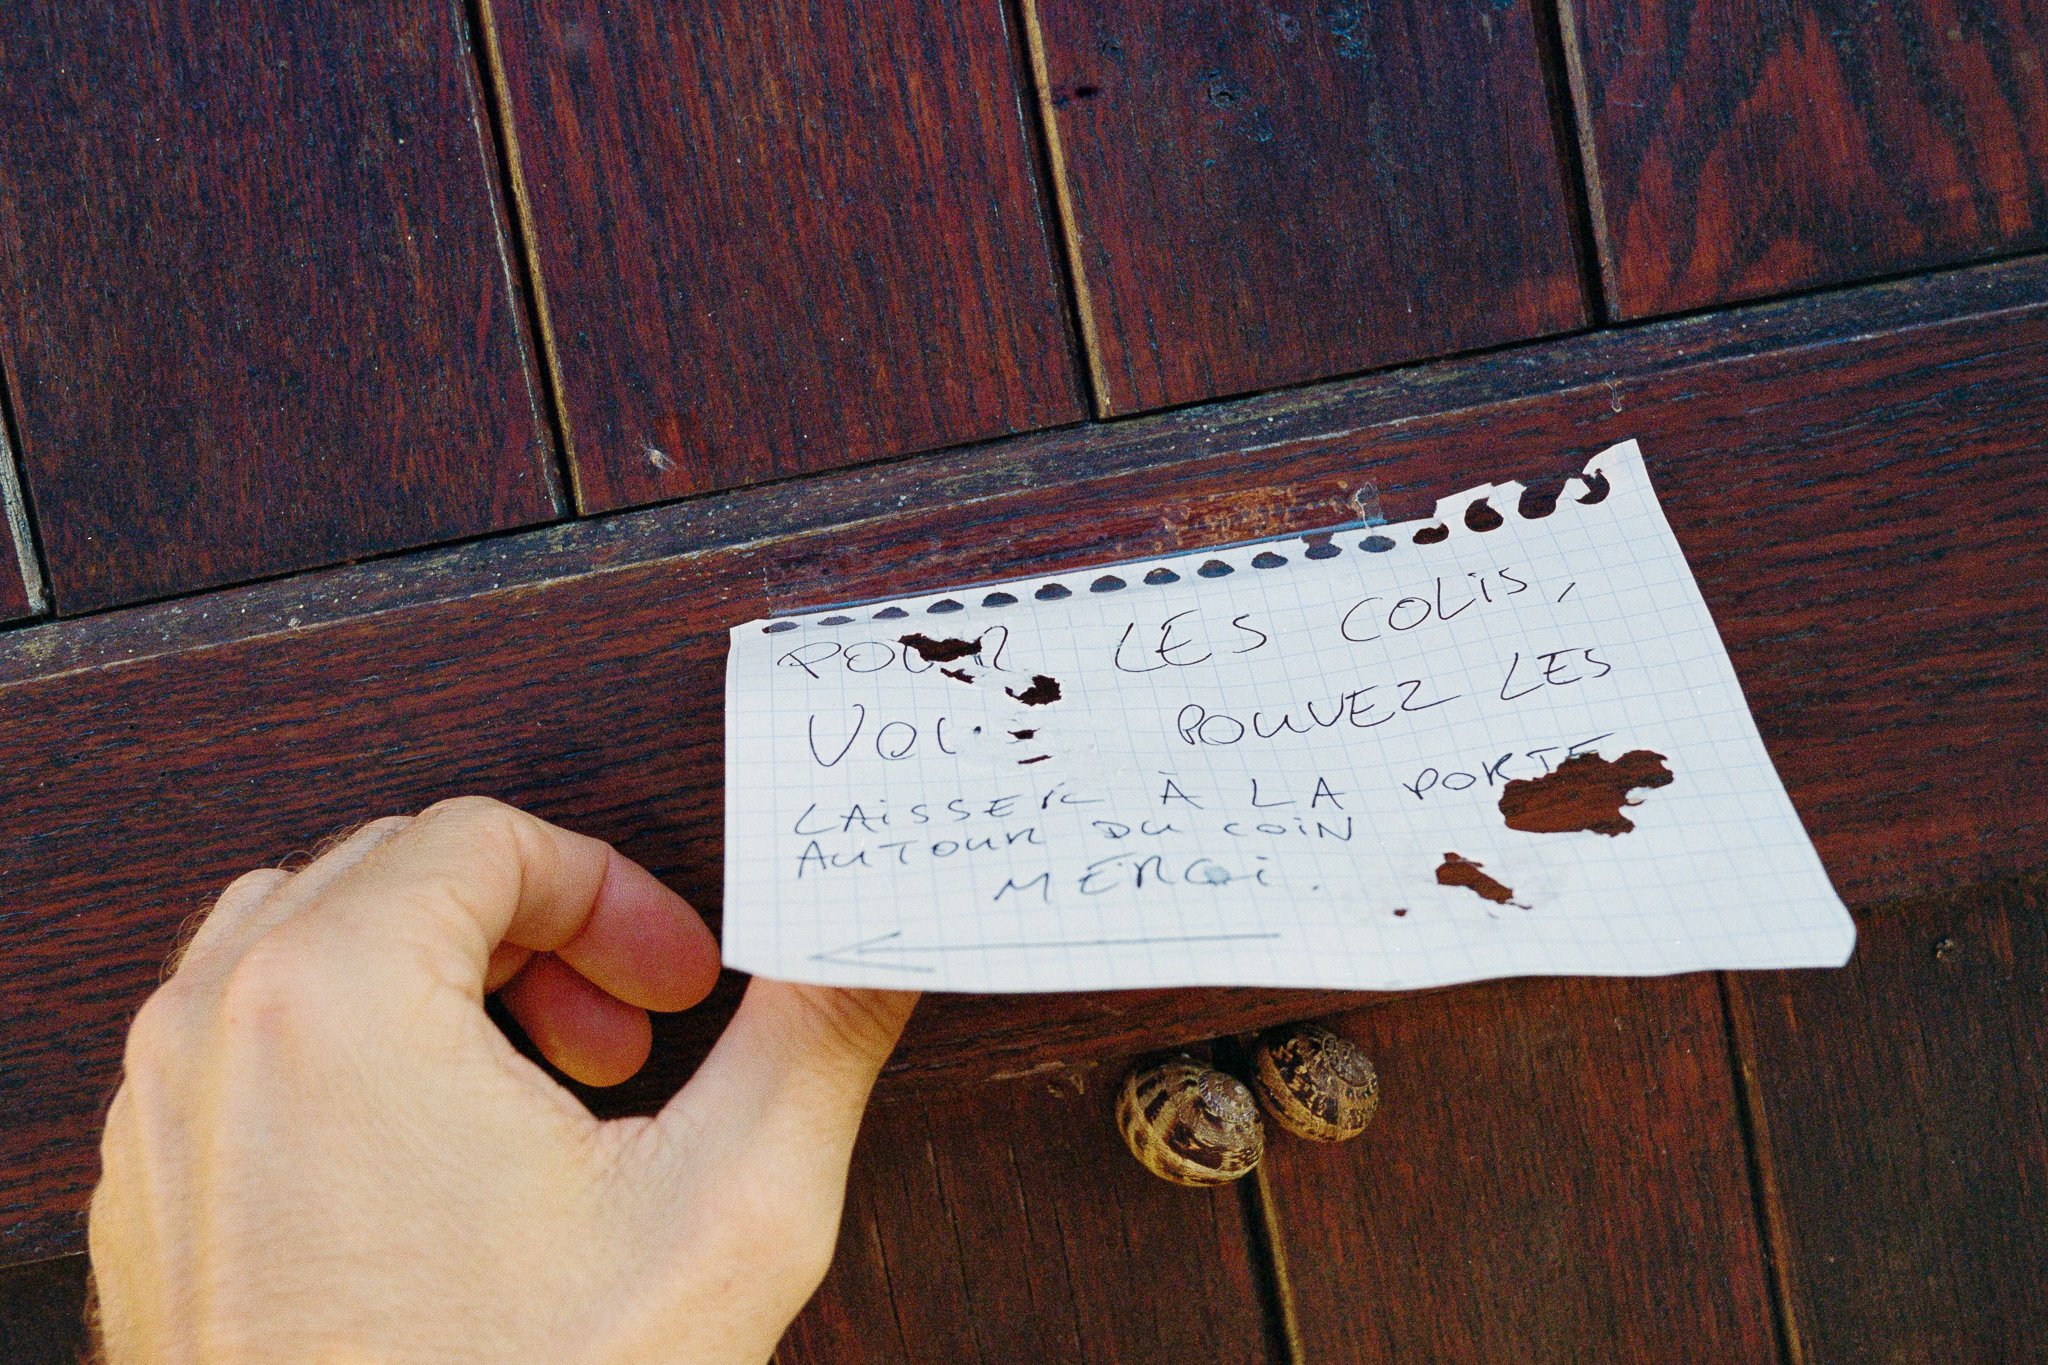 POUR LES COLIS,
POUVEZ LES
LAISSER À LA PORTE
AUTOUR DU COIN
MERCI.